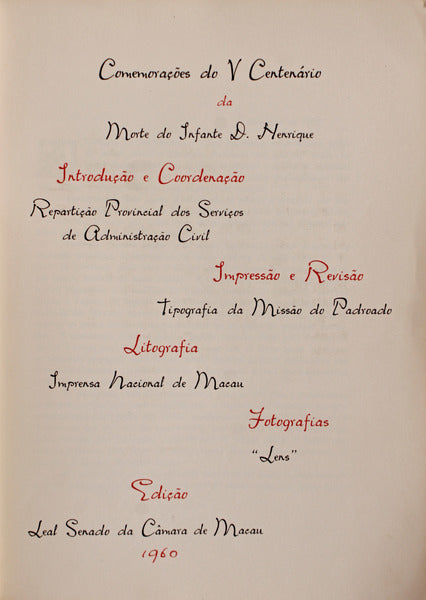 Comemorações do V Centenário
da
Morte do Infante D. Henrique
Introdução e Coordenação
Repartição Provincial dos Serviços
de Administração Civil
Impressão e Revisão
Tipografia da Missão do Padroado
Litografia
Imprensa Nacional de Macau
Fotografias
"Lens"
Edição
Leal Senado da Câmara de Macau
1960